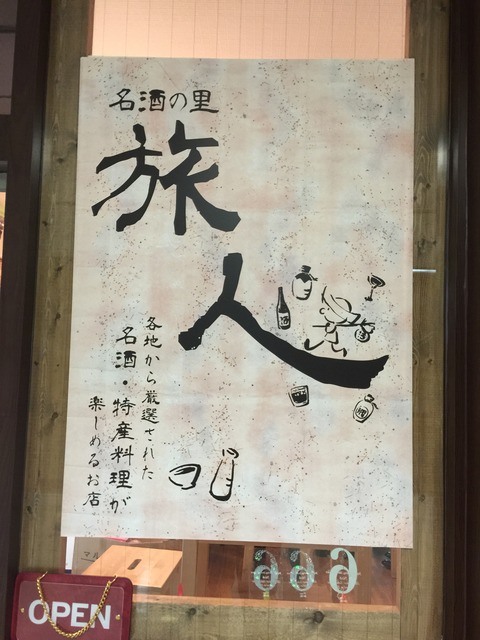 名酒の里
旅人
各地から厳選された
名酒・特産料理が
楽しめるお店
酒
OPEN